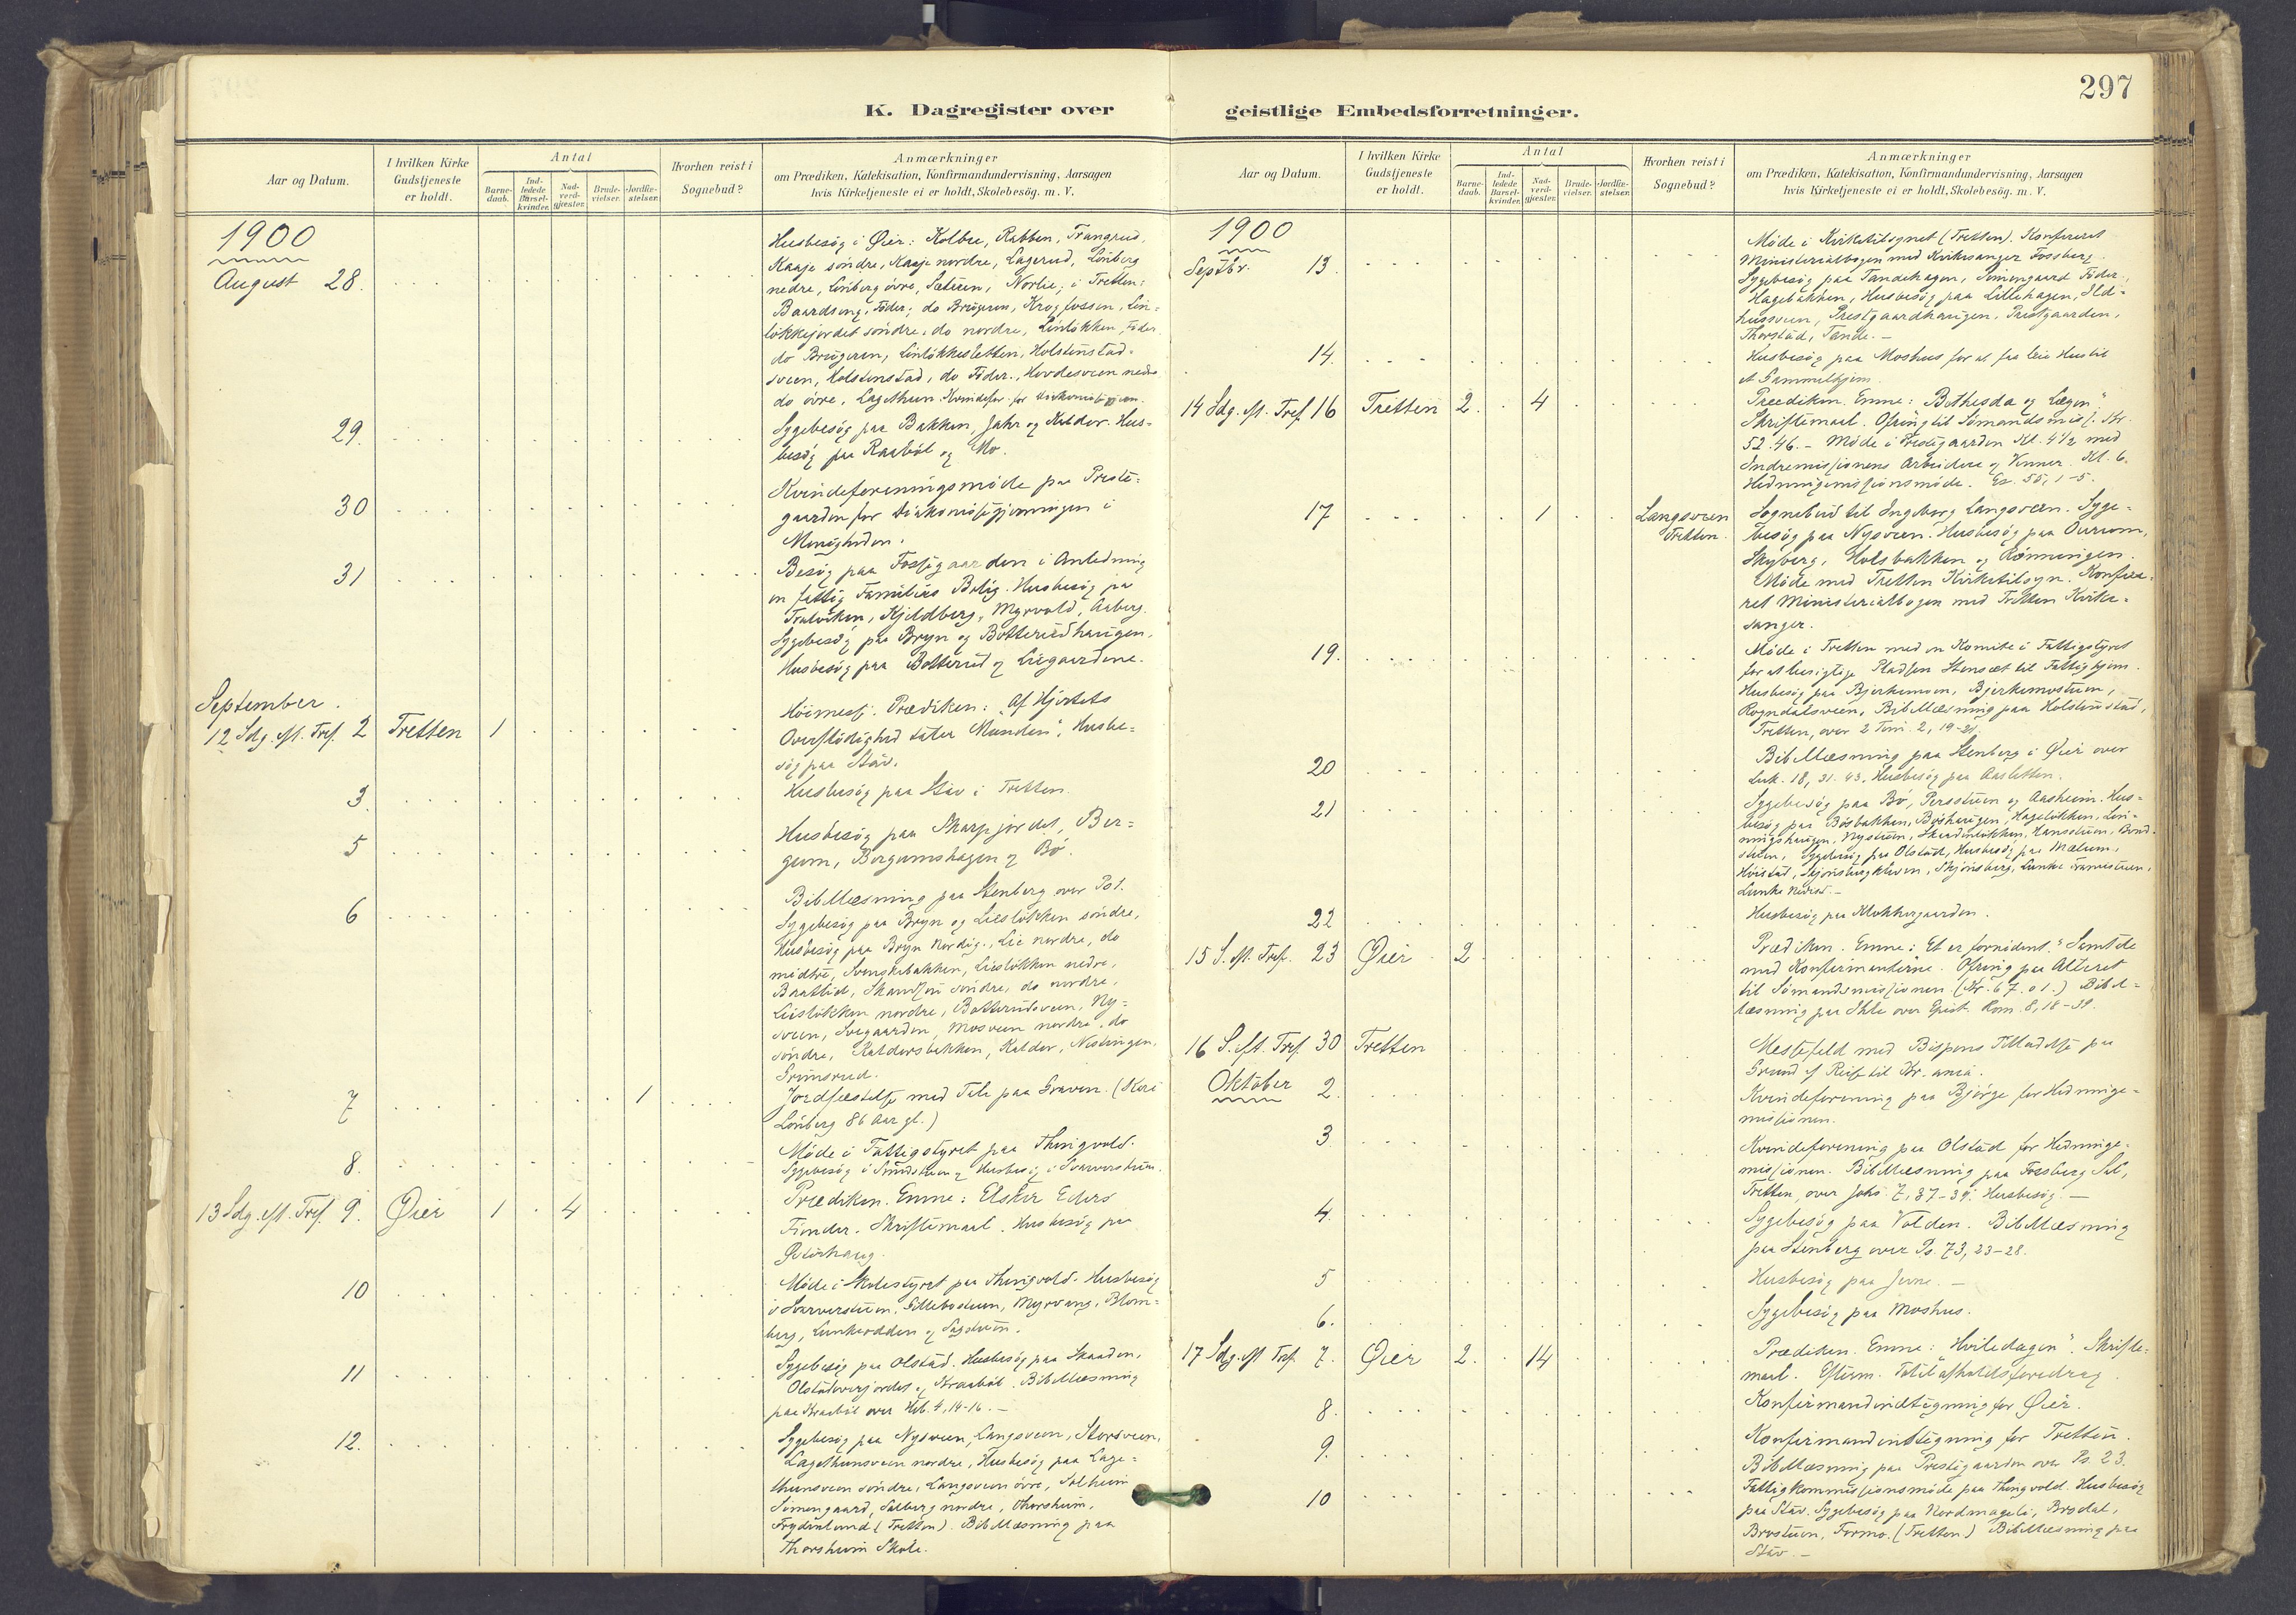 297
K. Dagregister over geistlige Embedsforretninger.
Aar og Datum.
I hvilken Kirke Gudstjeneste er holdt.
Antal
Barne-daab.
Ind-ledede Barsel-kvinder.
Nad-verd-gjæster.
Brude-vielser.
Jordfæ-stelser.
Hvorhen reist i Sognebud?
Anmærkninger
om Prædiken, Katekisation, Konfirmandundervisning, Aarsagen
hvis Kirketjeneste ei er holdt, Skolebesög. m. V.
1900
August 28.
Husbesög i Øier: Kolbu, Rabben, Trangrud,
Kaaje söndre, Kaaje nordre, Lagerud, Lönberg
nedre, Lönberg övre, Sæteren, Norlie; i Tretten:
Baardseng, Föder; do Brugeren, Krogfossen, Lin-
lökkejordet söndre, do nordre, Linlökken, Föder
do Brugeren, Linlökkesletten, Holstenstad-
sveen, Holstenstad, do Föder., Hovdesveen nedre
do övre, Lagethun.
29.
Sygebesög paa Bakken, Jahr og Kaldor. Hus-
besög paa Raaböl og Mo.
30
Kvindeforeningsmöde paa Preste-
gaarden for Diakonissegjerningen i
Menigheden.
31
Besög paa Fossegaarden i Anledning
en fattig Families Bolig. Husbesög paa
Kjeldberg, Myrvold, Aaberg.
Sygebesög paa Bryn og Botterudhaugen.
Husbesög paa Botterud og Liegaardene.
September.
12 Sdg. eft. Tref. 2 Tretten 1
Höimesse. Prædiken: "Af Hjertets
Overflödighed taler Munden". Husbe-
sög paa Stav.
3.
Husbesög paa Stav i Tretten.
5
Husbesög paa Skarpjordet, Ber-
gum, Bergumshagen og Bö.
6
Bibellæsning paa Stenberg over Ps 1.
Sygebesög paa Bryn og Lieslökken söndre,
Husbesög paa Bryn Nordig., Lie nordre, do
midtre, Svenskebakken, Lieslökken nedre,
Baatlid, söndre, do nordre,
Lieslökken nordre, Botterudsveen, Ny-
sveen, Svegaarden, Mosveen nordre, do
söndre, Kaldorsbakken, Kaldor, Nestingen,
Grimsrud.
7 1
Jordfæstelse med Tale paa Graven. (Kari
Lönberg 86 Aar gl.)
8.
Möde i Fattigstyret paa Thingvold.
Sygebesög i Sundstuen og Husbesög i Svarverstuen.
13 Sdg. eft. Tref. 9. Øier 1 4
Prædiken. Emne: Elsker Eders
Fiender. Skriftemaal. Husbesög paa
10
Möde i Skolestyret paa Thingvold. Husbesög
i Svarverstuen, Myrvang, Blom-
berg, Lunkeodden og Sagstuen.
11
Sygebesög paa Olstad. Husbesög paa Skaaden,
og Kraaböl. Bibellæsning
paa Kraaböl over Heb. 4, 14-16. -
12.
Sygebesög paa Nysveen, Langsveen, Storsveen,
Lagethunsveen nordre, Husbesög paa Lage-
thunsveen söndre, Langsveen övre, Solheim
Simengaard, Solberg nordre, Thorsheim,
Frydenlund (Tretten). Bibellæsning paa
Thorsheim Skole.
Aar og Datum.
I hvilken Kirke Gudstjeneste er holdt.
Antal
Barne-daab.
Ind-ledede Barsel-kvinder.
Nad-verd-gjæster.
Brude-vielser.
Jordfæ-stelser.
Hvorhen reist i Sognebud?
Anmærkninger
om Prædiken, Katekisation, Konfirmandundervisning, Aarsagen
hvis Kirketjeneste ei er holdt, Skolebesög. m. V.
1900
Septbr. 13.
Möde i Kirketilsynet (Tretten). Konfereret
Ministerialbogen med Kirkesanger Fossberg.
Sygebesög paa Tandehagen, Simengaard Föder.,
Hagebakken, Husbesög paa Lillehagen, Ild-
hussveen, Prestgaardhaugen, Prestgaarden,
Thorstad, Tande. -
14.
Husbesög paa Moshus for at faa leie Hus til
et Gammelhjem.
14 Sdg. eft. Tref. 16 Tretten 2 4
Prædiken. Emne: "Bethesda og Lægen"
Skriftemaal. Ofring til Sömandsmis. Kr.
52.46. - Möde i Prestegaarden Kl. 4 1/2 med
Indremissionens Arbeidere og Venner. Kl. 6.
Hedningemissionsmöde. Es. 55, 1-5.
17 1 Langsveen Tretten.
Sognebud til Ingeborg Langsveen. Syge-
besög paa Nysveen. Husbesög paa Ourum,
Skyberg, Holsbakken og Rönningen.
Möde med Tretten Kirketilsyn. Konfere-
ret Ministerialbogen med Tretten Kirke-
sanger.
19.
Möde i Tretten med en Komite i Fattigstyret
for at besigtige Pladsen Stenset til Fattighjem.
Husbesög paa Bjerkemoen, Bjerkemostuen,
Rogndalsveen, Bibellæsning paa Holstenstad,
Tretten, over 2 Tim. 2, 19-21.
20
Bibellæsning paa Stenberg i Øier over
Luk. 18, 31-43. Husbesög paa Aasletten.
21
Sygebesög paa Bö, Persstuen og Aasheim. Hus-
besög paa Bösbakken, Böshaugen, Hageløkken, Lin-
Nystuen, Skaadenlökken, Hansstuen, Bond-
stuen, Sygebesög paa Olstad, Husbesög paa Mælum,
Höistad, Skjönsberg, Lunke
Lunke Nedre. -
22
Husbesög paa Klokkergaarden.
15 S. eft. Tref. 23 Øier 2
Prædiken. Emne: Et er fornödent." Samtale
med Konfirmanterne. Ofring paa Alteret
til Sömandsmissionen (Kr. 67.01.) Bibel-
læsning paa Ihle over Epist. Rom. 8, 18-39.
16 S. eft. Tref. 30 Tretten
Messefald med Bispens Tilladelse paa
Grund af Reise til Kr. ania.
Oktober 2.
Kvindeforening paa Bjørge for Hedninge-
missionen.
3.
Kvindeforening paa Olstad for Hedninge-
missionen. Bibellæsning paa Fossberg Sal,
Tretten, over Johs. 7, 37-39. Husbesög. -
4.
Sygebesög paa Volden. Bibellæsning
paa Stenberg over Ps. 73, 23-28.
5
Husbesög paa Jevne. -
6.
Sygebesög paa Moshus.
17 Sdg. eft Tref. 7. Øier 2. 14
Prædiken. Emne: "Hviledagen". Skrifte-
maal. Efterm. Totalafholdsforedrag.
8.
Konfirmandindtegning for Øier.
9.
Konfirmandindtegning for Tretten.
Bibellæsning paa Prestegaarden over Ps. 23.
10
Fattigkommissionsmöde paa Thingvold. Husbesög
paa Stav. Sygebesög paa Nordmageli, Brydal,
Brostuen, Formo. (Tretten) Bibellæsning paa
Stav. -